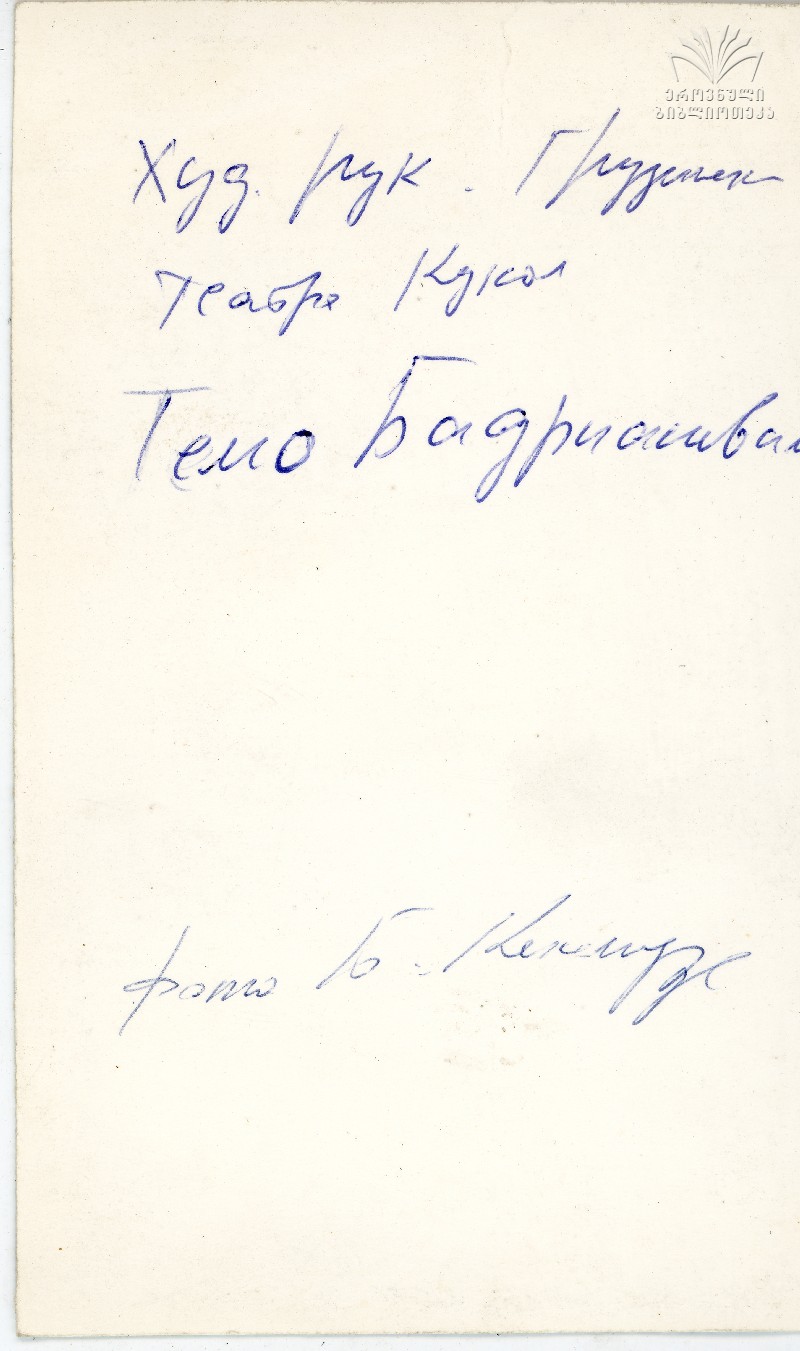 ეროვნული
ბიბლიოთეკა
Худ. рук. Грузинск
театра Кукол
Темо Бадриашвил
фото Б.